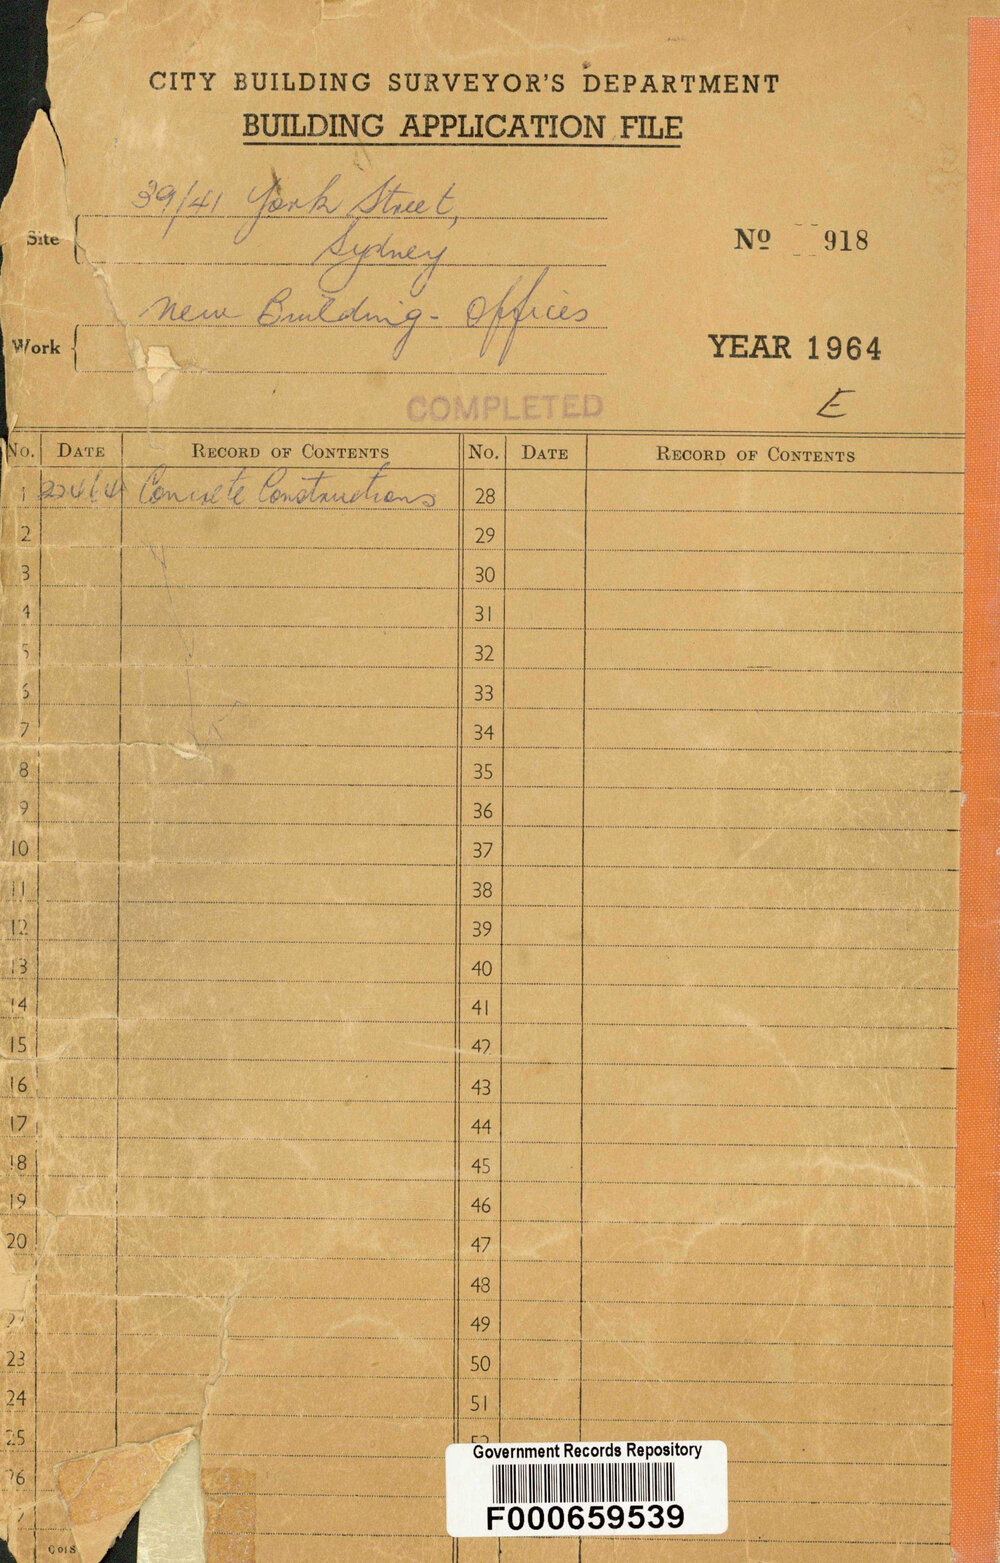 CITY BUILDING SURVEYOR'S DEPARTMENT
BUILDING APPLICATION FILE
39/41 York Street,
Site
Sydney
No 918
New Building - Offices
Work
YEAR 1964
COMPLETED
E
No. DATE RECORD OF CONTENTS No. DATE RECORD OF CONTENTS
1 Concrete Constructions 28
2 29
3 30
4 31
5 32
6 33
7 34
8 35
9 36
10 37
11 38
12 39
13 40
14 41
15 42
16 43
17 44
18 45
19 46
20 47
48
49
23 50
24 51
25 52
26
Government Records Repository
F000659539